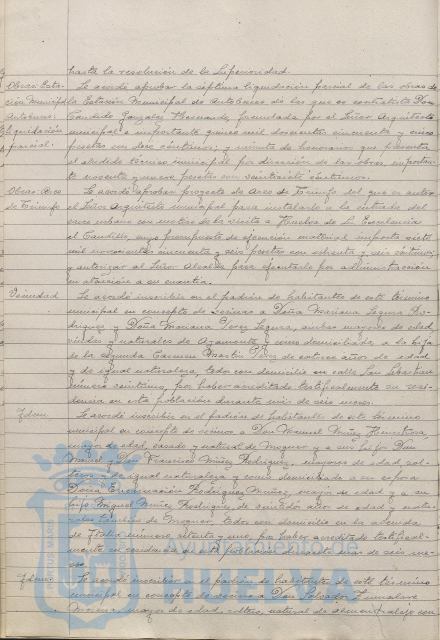 hasta la resolución de la Superioridad.
Obras: Esta- Se acordó aprobar la séptima liquidación parcial de las obras de
ción Municipal la Estación Municipal de Autobuses de las que es contratista Don
Autobuses: Candido González Hernandez, formulada por el Señor Arquitecto
liquidación municipal e importante quince mil doscientas cincuenta y cinco
parcial. pesetas con diez céntimos; y minuta de honorarios que presenta
el aludido técnico municipal por dirección de las obras, importan-
te noventa y nueve pesetas con veintisiete céntimos.
Obras: Arco Se acordó aprobar proyecto de Arco de Triunfo del que es autor
de Triunfo el Señor Arquitecto municipal para instalarlo a la entrada del
casco urbano con motivo de la visita a Huelva de S. Excelencia
el Caudillo, cuyo presupuesto de ejecución material importa siete
mil novecientas cincuenta y seis pesetas con ochenta y seis céntimos
y autorizar al Señor Alcalde para ejecutarlo por administración
en atención a su cuantía.
Vecindad Se acordó inscribir en el padrón de habitantes de este término
municipal en concepto de vecinas a Doña Mariana Segura Ro-
driguez y Doña Mariana Perez Segura, ambas mayores de edad,
viudas y naturales de Ayamonte y como domiciliada a la hija
de la segunda Carmen Martin Perez de catorce años de edad
y de igual naturaleza, todas con domicilio en calle San Sebastian
número veintiuno, por haber acreditado testificalmente su resi-
dencia en esta población durante más de seis meses.
Idem. Se acordó inscribir en el padrón de habitantes de este término
municipal en concepto de vecinos a Don Manuel Muñiz
mayor de edad, casado y natural de Moguer y a sus hijos Don
Manuel y Don Francisco Muñiz Rodriguez, mayores de edad, sol-
teros y de igual naturaleza y como domiciliados a su esposa
Doña Encarnación Rodriguez Muñiz, mayor de edad y a su
hijo Miguel Muñiz Rodriguez, de años de edad y natu-
rales también de Moguer, todos con domicilio en la avenida
de Italia número setenta y uno, por haber acreditado testifical-
mente su residencia en esta población durante más de seis me-
ses.
Idem. Se acordó inscribir en el padrón de habitantes de este término
municipal en concepto de vecino a Don Salvador
Molina, mayor de edad, soltero, natural de con
Ayuntamiento de
HUELVA